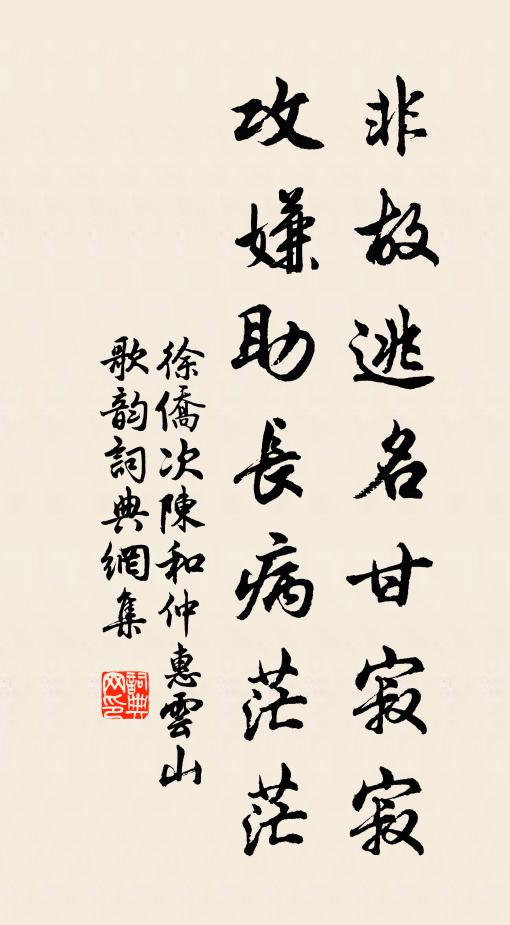 非故逃名甘寂寂
攻嫌助長病茫茫
徐僑次陳和仲惠雲山
歌韵詞典網集
詞典网印